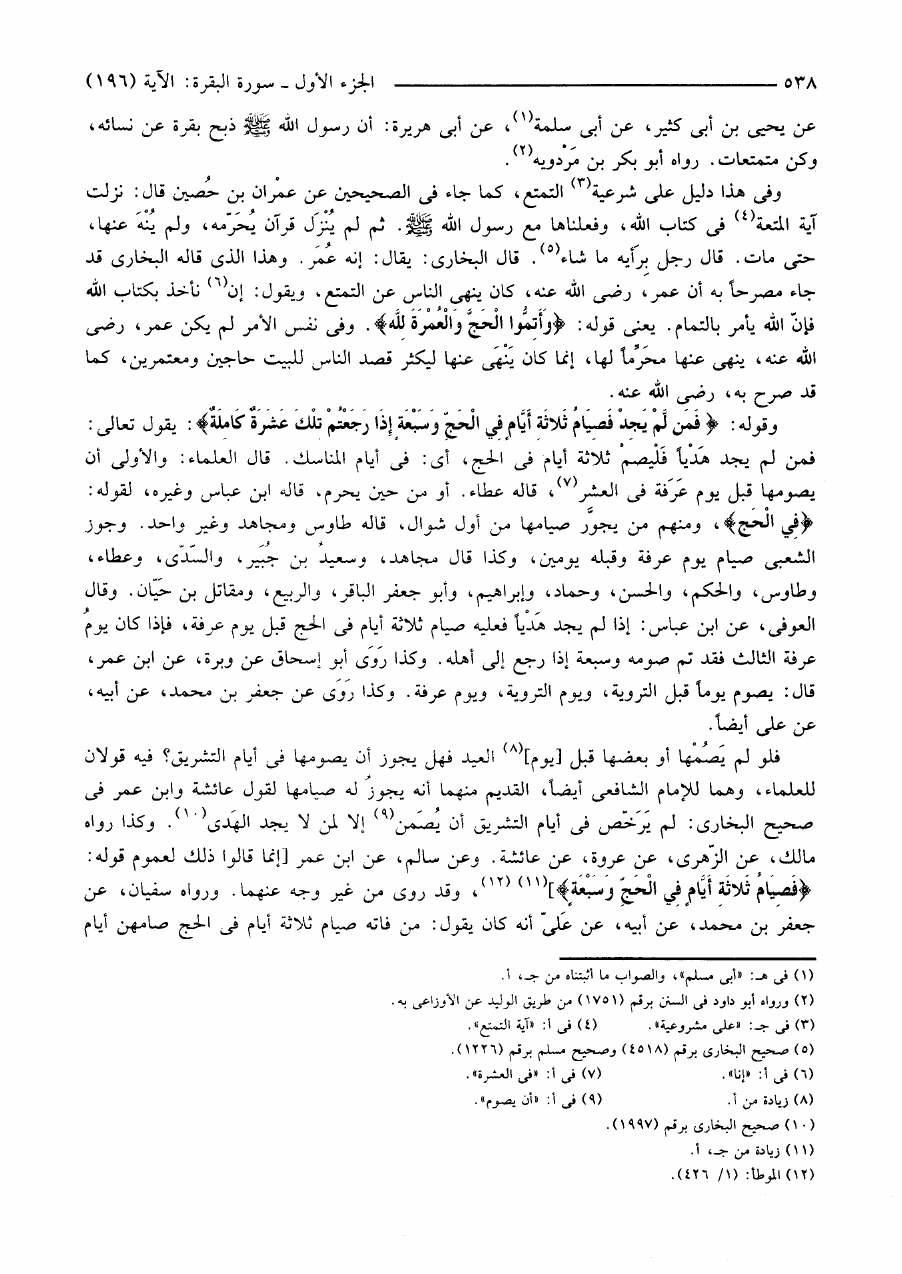 ٥٣٨ ــــــــــــــــــــ الجزء الأول ـ سورة البقرة: الآية (١٩٦)
عن يحيى بن أبى كثير، عن أبى سلمة(١)، عن أبى هريرة: أن رسول الله ﷺ ذبح بقرة عن نسائه،
وكن متمتعات. رواه أبو بكر بن مَرْدويه(٢).
وفى هذا دليل على شرعية(٣) التمتع، كما جاء فى الصحيحين عن عمْران بن حُصَين قال: نزلت
آية المتعة(٤) فى كتاب الله، وفعلناها مع رسول الله ﷺ. ثم لم يُنْزَل قرآن يُحَرّمه، ولم يُنْهَ عنها،
حتى مات. قال رجل بِرَأيه ما شاء(٥). قال البخارى: يقال: إنه عُمَر. وهذا الذى قاله البخارى قد
جاء مصرحاً به أن عمر، رضى الله عنه، كان ينهى الناس عن التمتع، ويقول: إن(٦) نأخذ بكتاب الله
فإنّ الله يأمر بالتمام. يعنى قوله: ﴿وَأَتِمُّوا الْحَجَّ وَالْعُمْرَةَ لِلَّهِ﴾. وفى نفس الأمر لم يكن عمر، رضى
الله عنه، ينهى عنها محَرِّماً لها، إنما كان يَنْهَى عنها ليكثر قصد الناس للبيت حاجين ومعتمرين، كما
قد صرح به، رضى الله عنه.
وقوله: ﴿ فَمَن لَّمْ يَجِدْ فَصِيَامُ ثَلاثَةِ أَيَّامٍ فِي الْحَجِّ وَسَبْعَةٍ إِذَا رَجَعْتُمْ تِلْكَ عَشَرَةٌ كَامِلَةٌ﴾: يقول تعالى:
فمن لم يجد هَدْياً فَلْيصمْ ثلاثة أيام فى الحج، أى: فى أيام المناسك. قال العلماء: والأولى أن
يصومها قبل يوم عَرَفة فى العشر(٧)، قاله عطاء. أو من حين يحرم، قاله ابن عباس وغيره، لقوله:
﴿فِي الْحَجِّ﴾، ومنهم من يجوَّز صيامها من أول شوال، قاله طاوس ومجاهد وغير واحد. وجوز
الشعبى صيام يوم عرفة وقبله يومين، وكذا قال مجاهد، وسعيدُ بن جُبَير، والسّدّى، وعطاء،
وطاوس، والحكم، والحسن، وحماد، وإبراهيم، وأبو جعفر الباقر، والربيع، ومقاتل بن حَيّان. وقال
العوفى، عن ابن عباس: إذا لم يجد هَدْياً فعليه صيام ثلاثة أيام فى الحج قبل يوم عرفة، فإذا كان يومُ
عرفة الثالث فقد تم صومه وسبعة إذا رجع إلى أهله. وكذا رَوَى أبو إسحاق عن وبرة، عن ابن عمر،
قال: يصوم يوماً قبل التروية، ويوم التروية، ويوم عرفة. وكذا رَوَى عن جعفر بن محمد، عن أبيه،
عن على أيضاً.
فلو لم يَصُمْها أو بعضها قبل [يوم](٨) العيد فهل يجوز أن يصومها فى أيام التشريق؟ فيه قولان
للعلماء، وهما للإمام الشافعى أيضاً، القديم منهما أنه يجوزُ له صيامها لقول عائشة وابن عمر فى
صحيح البخارى: لم يُرَخّص فى أيام التشريق أن يُصُمَن(٩) إلا لمن لا يجد الهَدى(١٠). وكذا رواه
مالك، عن الزّهرى، عن عروة، عن عائشة. وعن سالم، عن ابن عمر [إنما قالوا ذلك لعموم قوله:
﴿فَصِيَامُ ثَلاثَةِ أَيَّامٍ فِي الْحَجِّ وَسَبْعَةٍ﴾](١١) (١٢)، وقد روى من غير وجه عنهما. ورواه سفيان، عن
جعفر بن محمد، عن أبيه، عن عَلىّ أنه كان يقول: من فاته صيام ثلاثة أيام فى الحج صامهن أيام
(١) فى هـ: «أبى مسلم»، والصواب ما أثبتناه من جـ، أ.
(٢) ورواه أبو داود فى السنن برقم (١٧٥١) من طريق الوليد عن الأوزاعى به.
(٣) فى جـ: «على مشروعية». (٤) فى أ: «آية التمتع».
(٥) صحيح البخارى برقم (٤٥١٨) وصحيح مسلم برقم (١٢٢٦).
(٦) فى أ: «إنا». (٧) فى أ: «فى العشرة».
(٨) زيادة من أ. (٩) فى أ: «أن يصوم».
(١٠) صحيح البخارى برقم (١٩٩٧).
(١١) زيادة من جـ، أ.
(١٢) الموطأ: (١/ ٤٢٦).